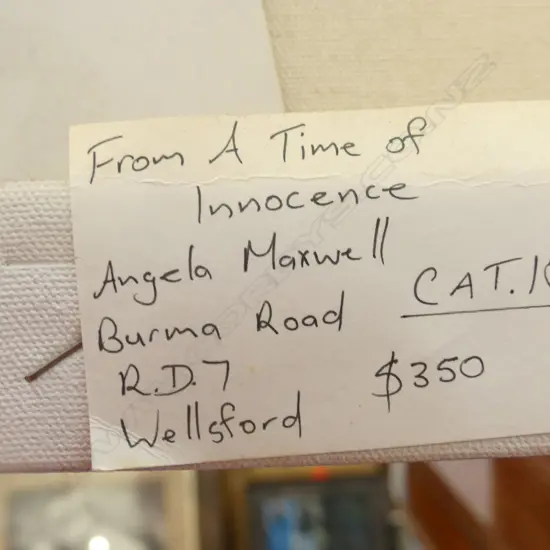 From A Time of
Innocence
Angela Maxwell
Burma Road
CAT.10
R.D.7
$350
Wellsford